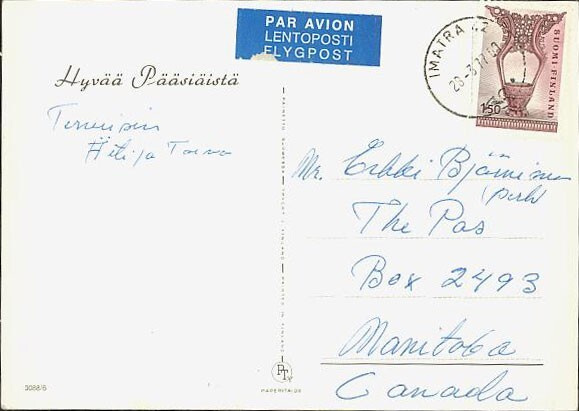 PAR AVION
LENTOPOSTI
FLYGPOST
IMATRA
SUOMI-FINLAND
1,50
Hyvää Pääsiäistä
Terveisin
Äiti ja Toivo
Mr. Erkki
perh
The Pas
Box 2493
Manitoba
Canada
PT
PAPERITALOS
3088/6